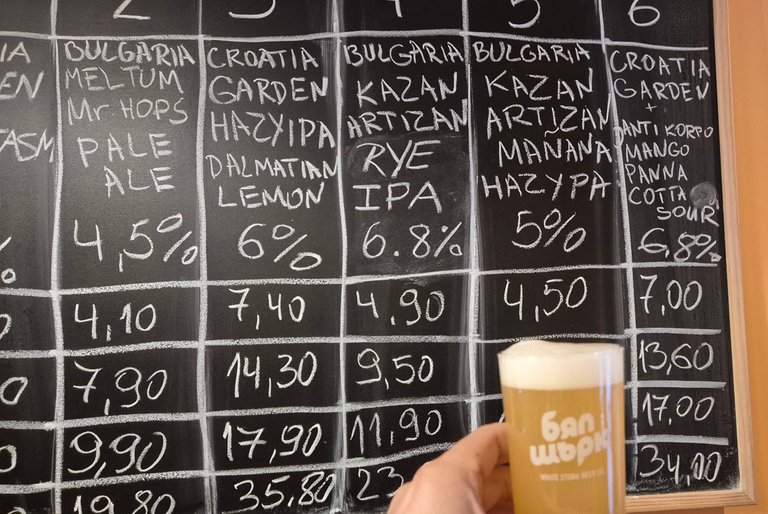 2 3 4 5 6
IA
EN
TASM
%
0
0
BULGARIA
MELTUM
Mr HOPS
PALE
ALE
4,5%
4,10
7,90
9,90
19,80
CROATIA
GARDEN
HAZYIPA
DALMATIAN
LEMON
6%
7,40
14,30
17,90
35,80
BULGARIA
KAZAN
ARTIZAN
RYE
IPA
6.8%
4,90
9,50
11,90
23
BULGARIA
KAZAN
ARTIZAN
MAÑANA
HAZYPA
5%
4,50
CROATIA
GARDEN
+
ANTI KORPO
MANGO
PANNA
COTTA
SOUR
6,8%
7,00
13,60
17,00
34,00
бял
щърк
WHITE STORK BEER CO.